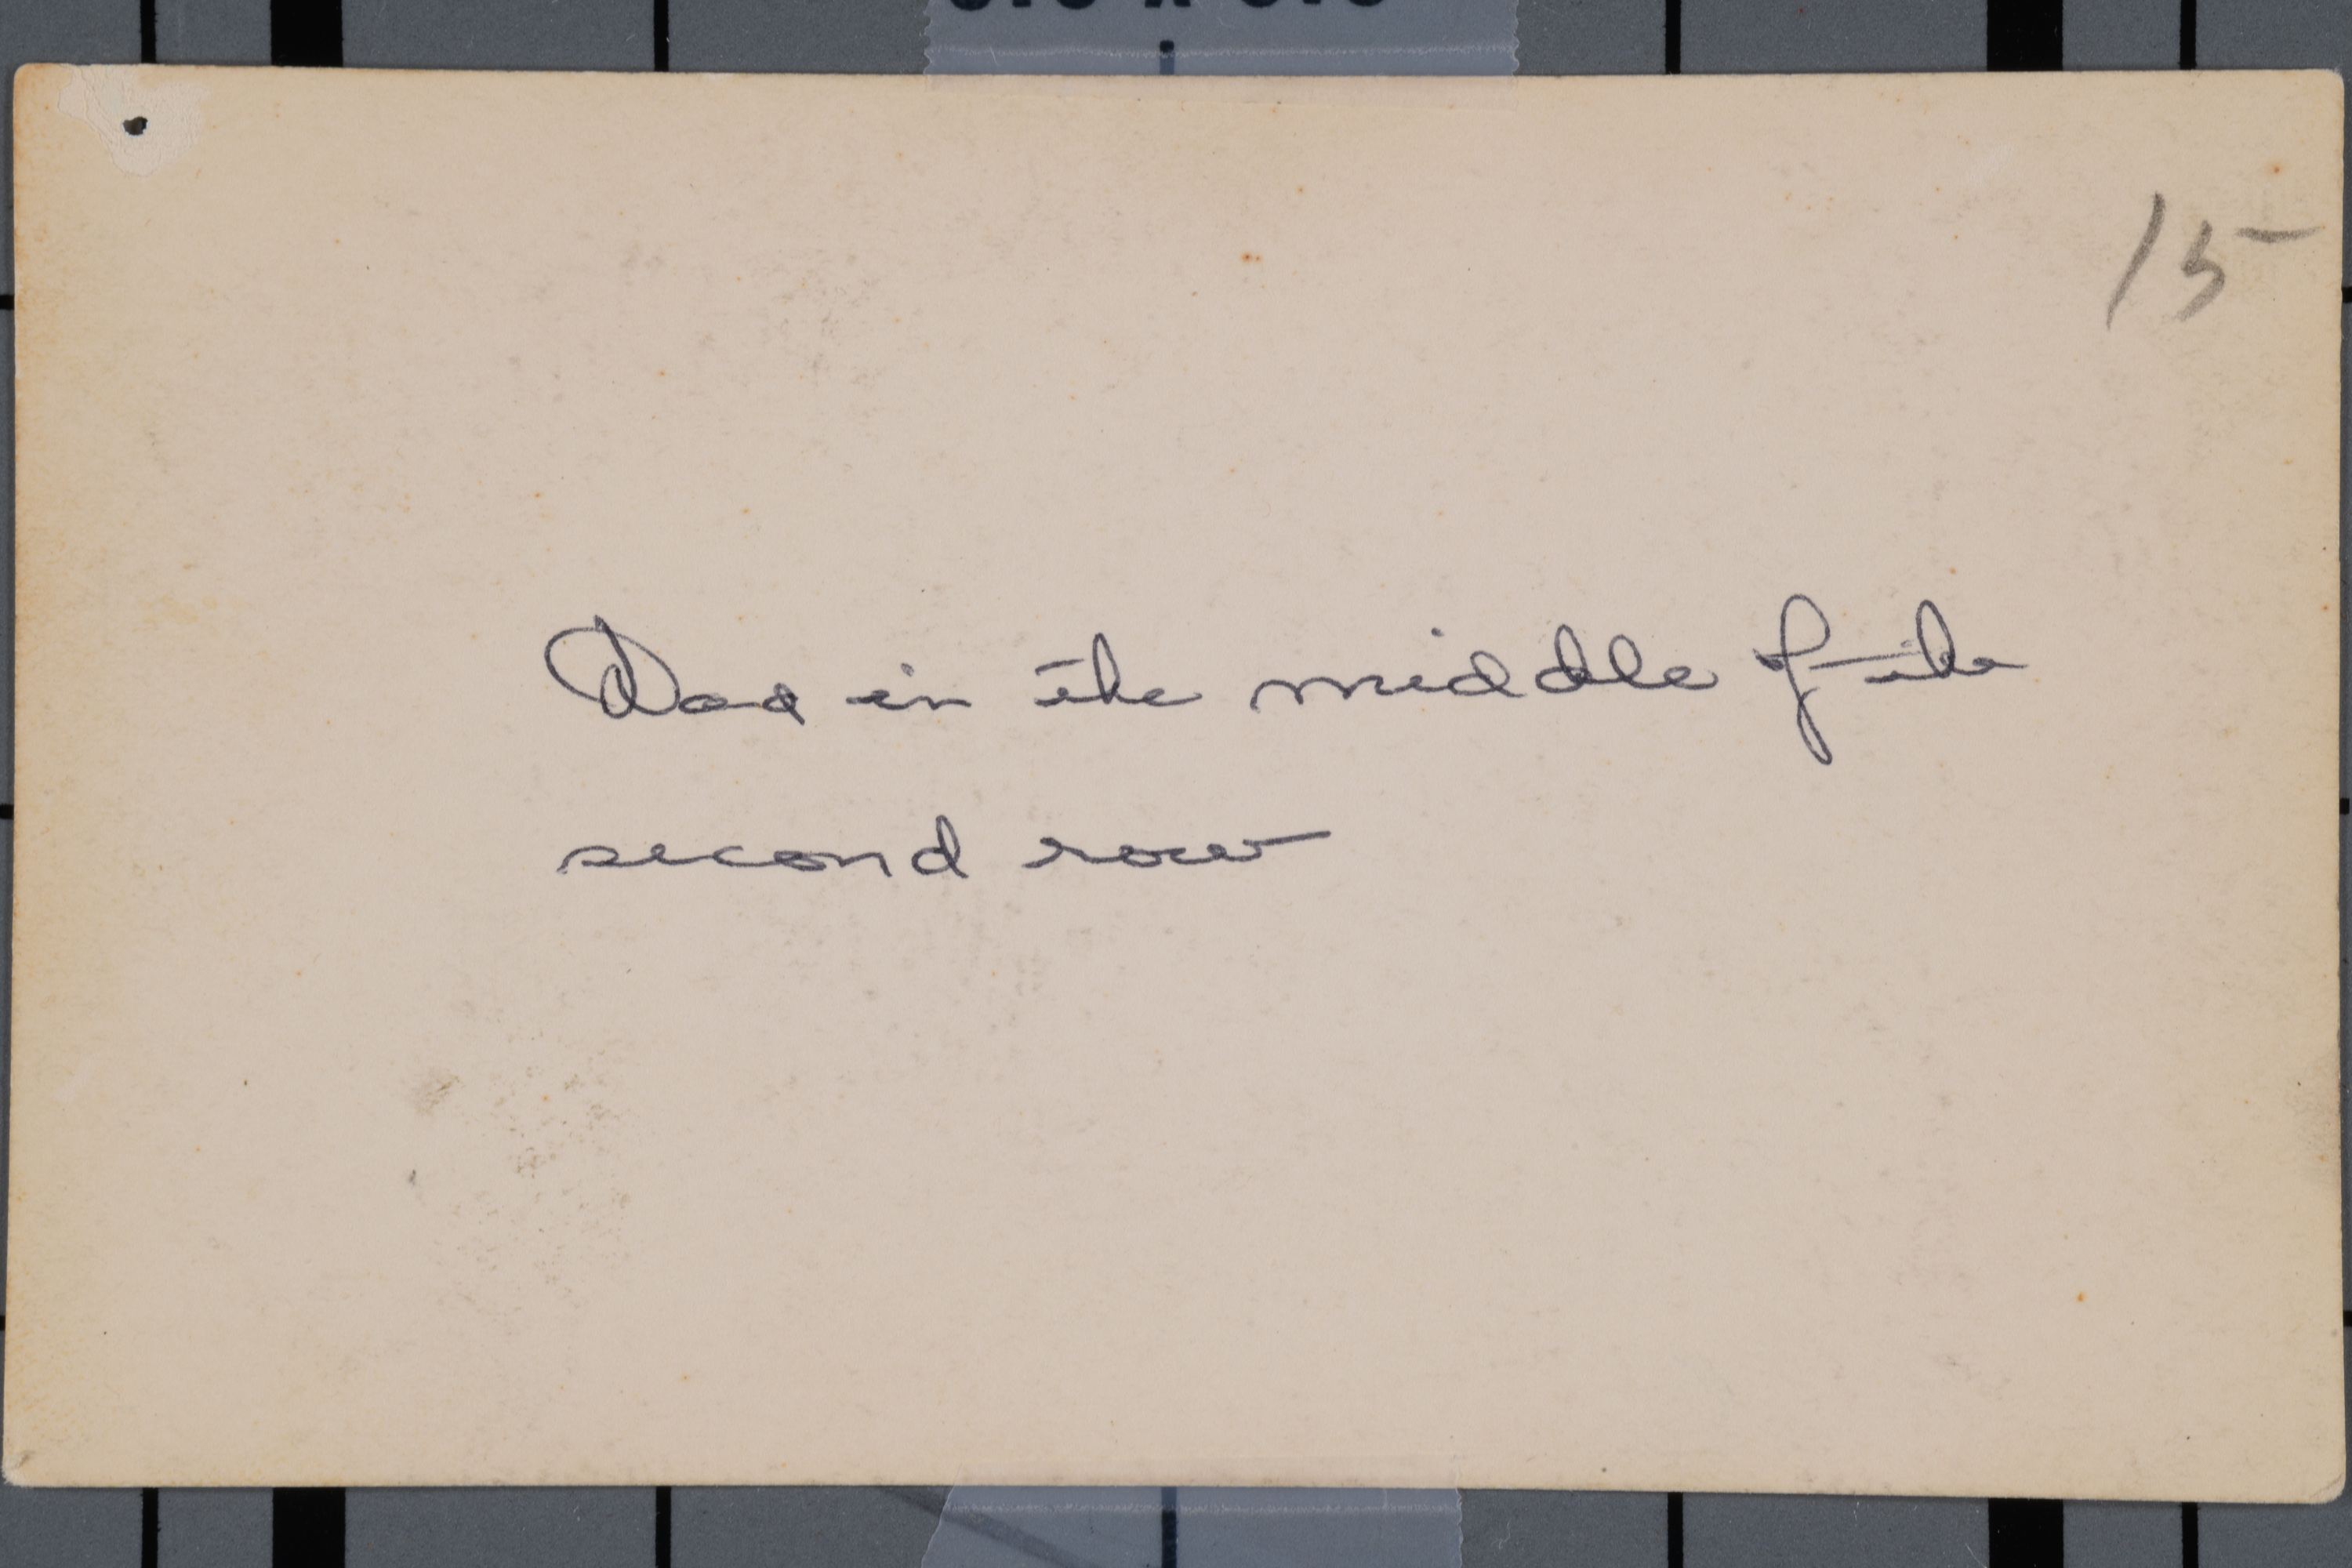 15
Dad in the middle of the
second row